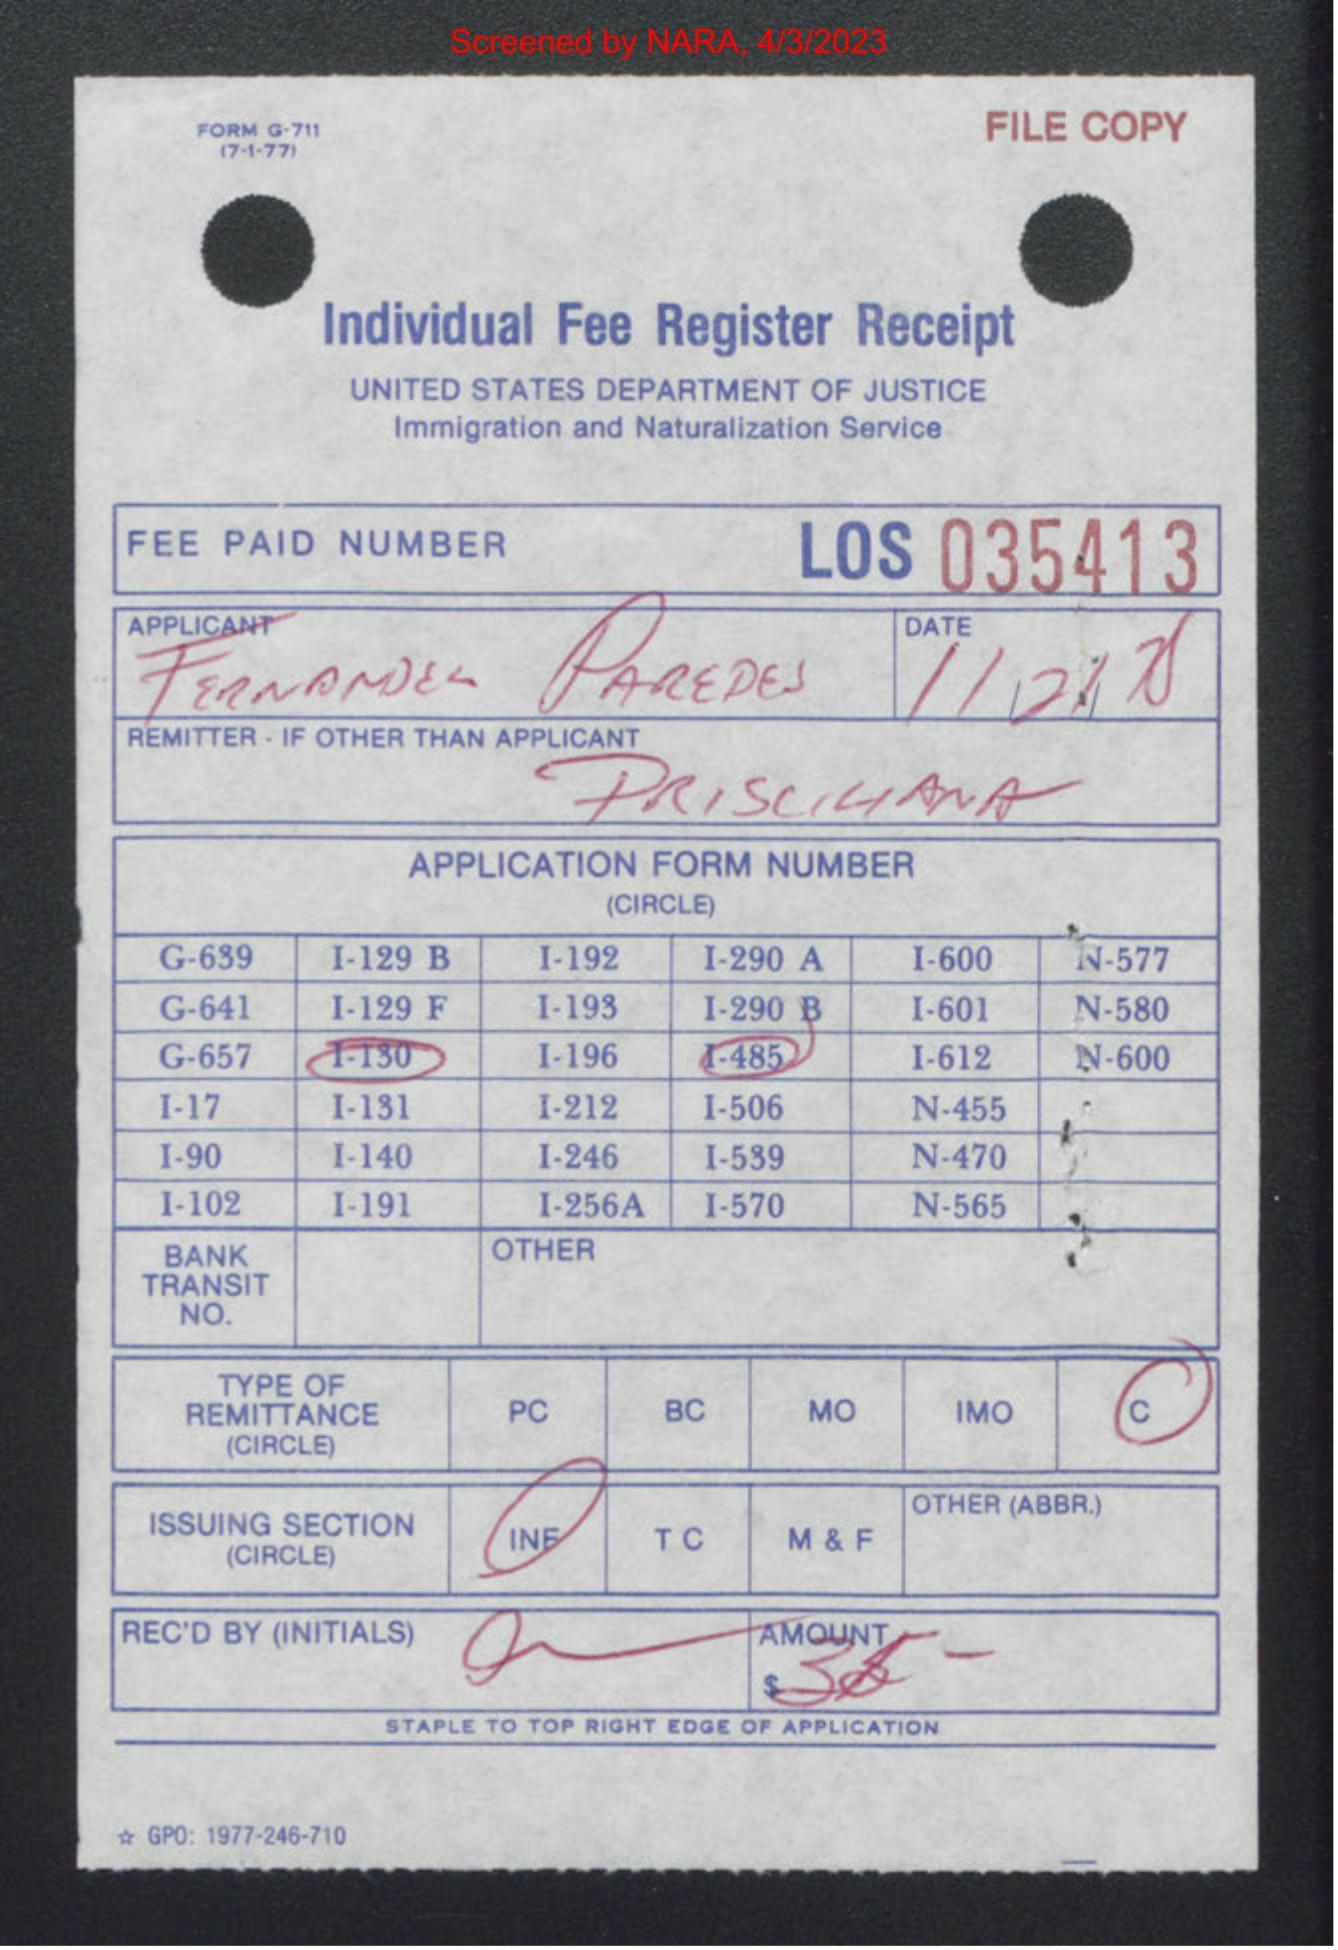 Screened by NARA, 4/3/2023
FORM G-711
(7-1-77)
FILE COPY
Individual Fee Register Receipt
UNITED STATES DEPARTMENT OF JUSTICE
Immigration and Naturalization Service
FEE PAID NUMBER LOS 035413
APPLICANT DATE
FERNANDEZ PAREDES 11/21/78
REMITTER - IF OTHER THAN APPLICANT
PRISCILIANA
APPLICATION FORM NUMBER
(CIRCLE)
G-639 I-129 B I-192 I-290 A I-600 N-577
G-641 I-129 F I-193 I-290 B I-601 N-580
G-657 I-130 I-196 I-485 I-612 N-600
I-17 I-131 I-212 I-506 N-455
I-90 I-140 I-246 I-539 N-470
I-102 I-191 I-256A I-570 N-565
BANK TRANSIT NO. OTHER
TYPE OF REMITTANCE (CIRCLE) PC BC MO IMO C
ISSUING SECTION (CIRCLE) INF T C M & F OTHER (ABBR.)
REC'D BY (INITIALS) AMOUNT
$35-
STAPLE TO TOP RIGHT EDGE OF APPLICATION
☆ GPO: 1977-246-710